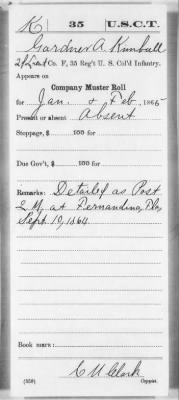 K | 35 | U.S.C.T.
Gardner A. Kimball
2d Lieut, Co. F, 35 Reg't U. S. Col'd Infantry.
Appears on
Company Muster Roll
for Jan. & Feb, 1865
Present or absent Absent
Stoppage, $ 100 for
Due Gov't, $ 100 for
Remarks: Detailed as Post
Q. M. at Fernandina, Fla,
Sept. 19, 1864
Book mark:
C U Clark
(358) Copyist.